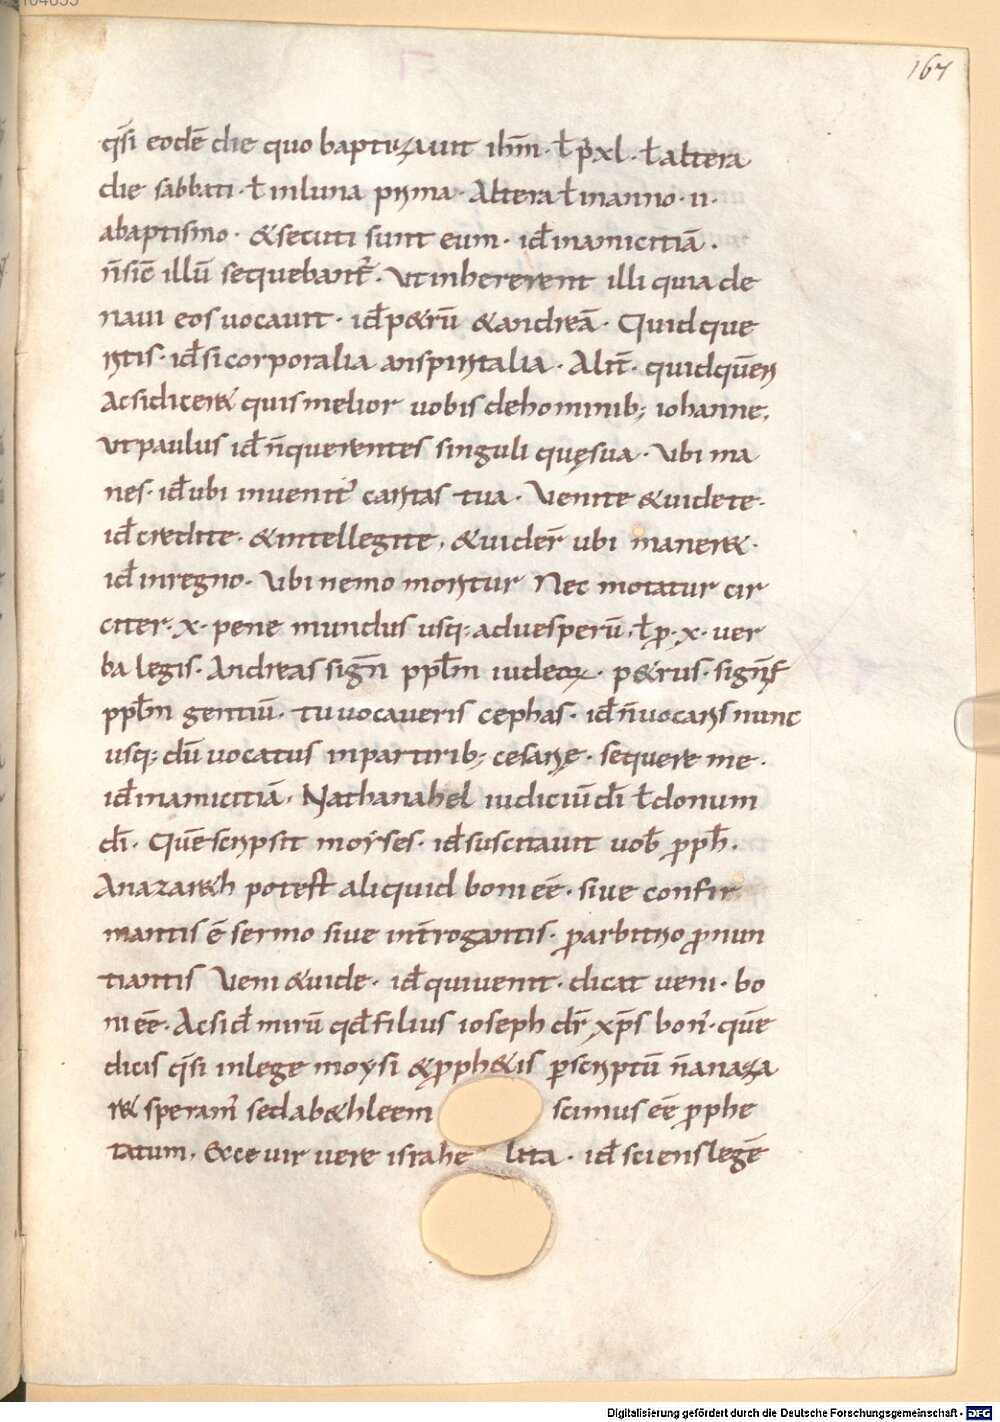 167
q̄si eodē die quo baptizauit ihm̄ · ƚ p̄ xl · ƚ altera
die sabbati · ƚ in luna prima · Altera ƚ in anno · ii ·
a baptismo · & secuti sunt eum · id÷ in amicitiā ·
n̄ siē illū sequebant᷑ · Ut inhererent illi quia de
naui eos uocauit · id÷ p&rū & andreā · Quid que
ritis · id÷ si corporalia an spiritalia · Alit̄ · quid quēri
Ac si dicer& quis melior uobis de hominib; iohanne,
ut paulus id÷ n̄ querentes singuli quę sua · Ubi ma
nes · id÷ ubi inuenit᷑ caritas tua · Venite & uidete ·
id÷ credite · & intellegite, & uider̄ ubi maner& ·
id÷ in regno · Ubi nemo moritur Nec motatur cir
citer · x · pene mundus usq; ad uesperū, ƚ ꝓ · x · uer
ba legis · Andreas sign̄ ppƚm iudeoꝝ · p&rus · signf̄
ppƚm gentiū · tu uocaueris cephas · id÷ n̄ uocaris nunc
usq; dū uocatus in partirib; cesarię · sequere me ·
id÷ in amicitiā, Nathanahel iudiciū dī ƚ donum
dī · Quē scripsit moyses · id÷ suscitauit uob̄ ꝓph̄ ·
A nazar&h potest aliquid boni eē · siue confir
mantis ē sermo siue int̄rogantis · ꝑ arbitrio ꝓnun
tiantis Veni & uide · id÷ qui uenit · dicat ueni · bo
ni eē · Ac si d÷ mirū qd÷ filius ioseph dr̄ xp̄s bon᷑ · quē
dicis q̄si in lege moysi & ꝓph&is ꝑscriptū n̄ a naza
r& speram᷑ sed a b&hleem scimus eē ꝓphe
tatum, Ecce uir uere israhe lita · id÷ sciens legē
Digitalisierung gefördert durch die Deutsche Forschungsgemeinschaft - DFG